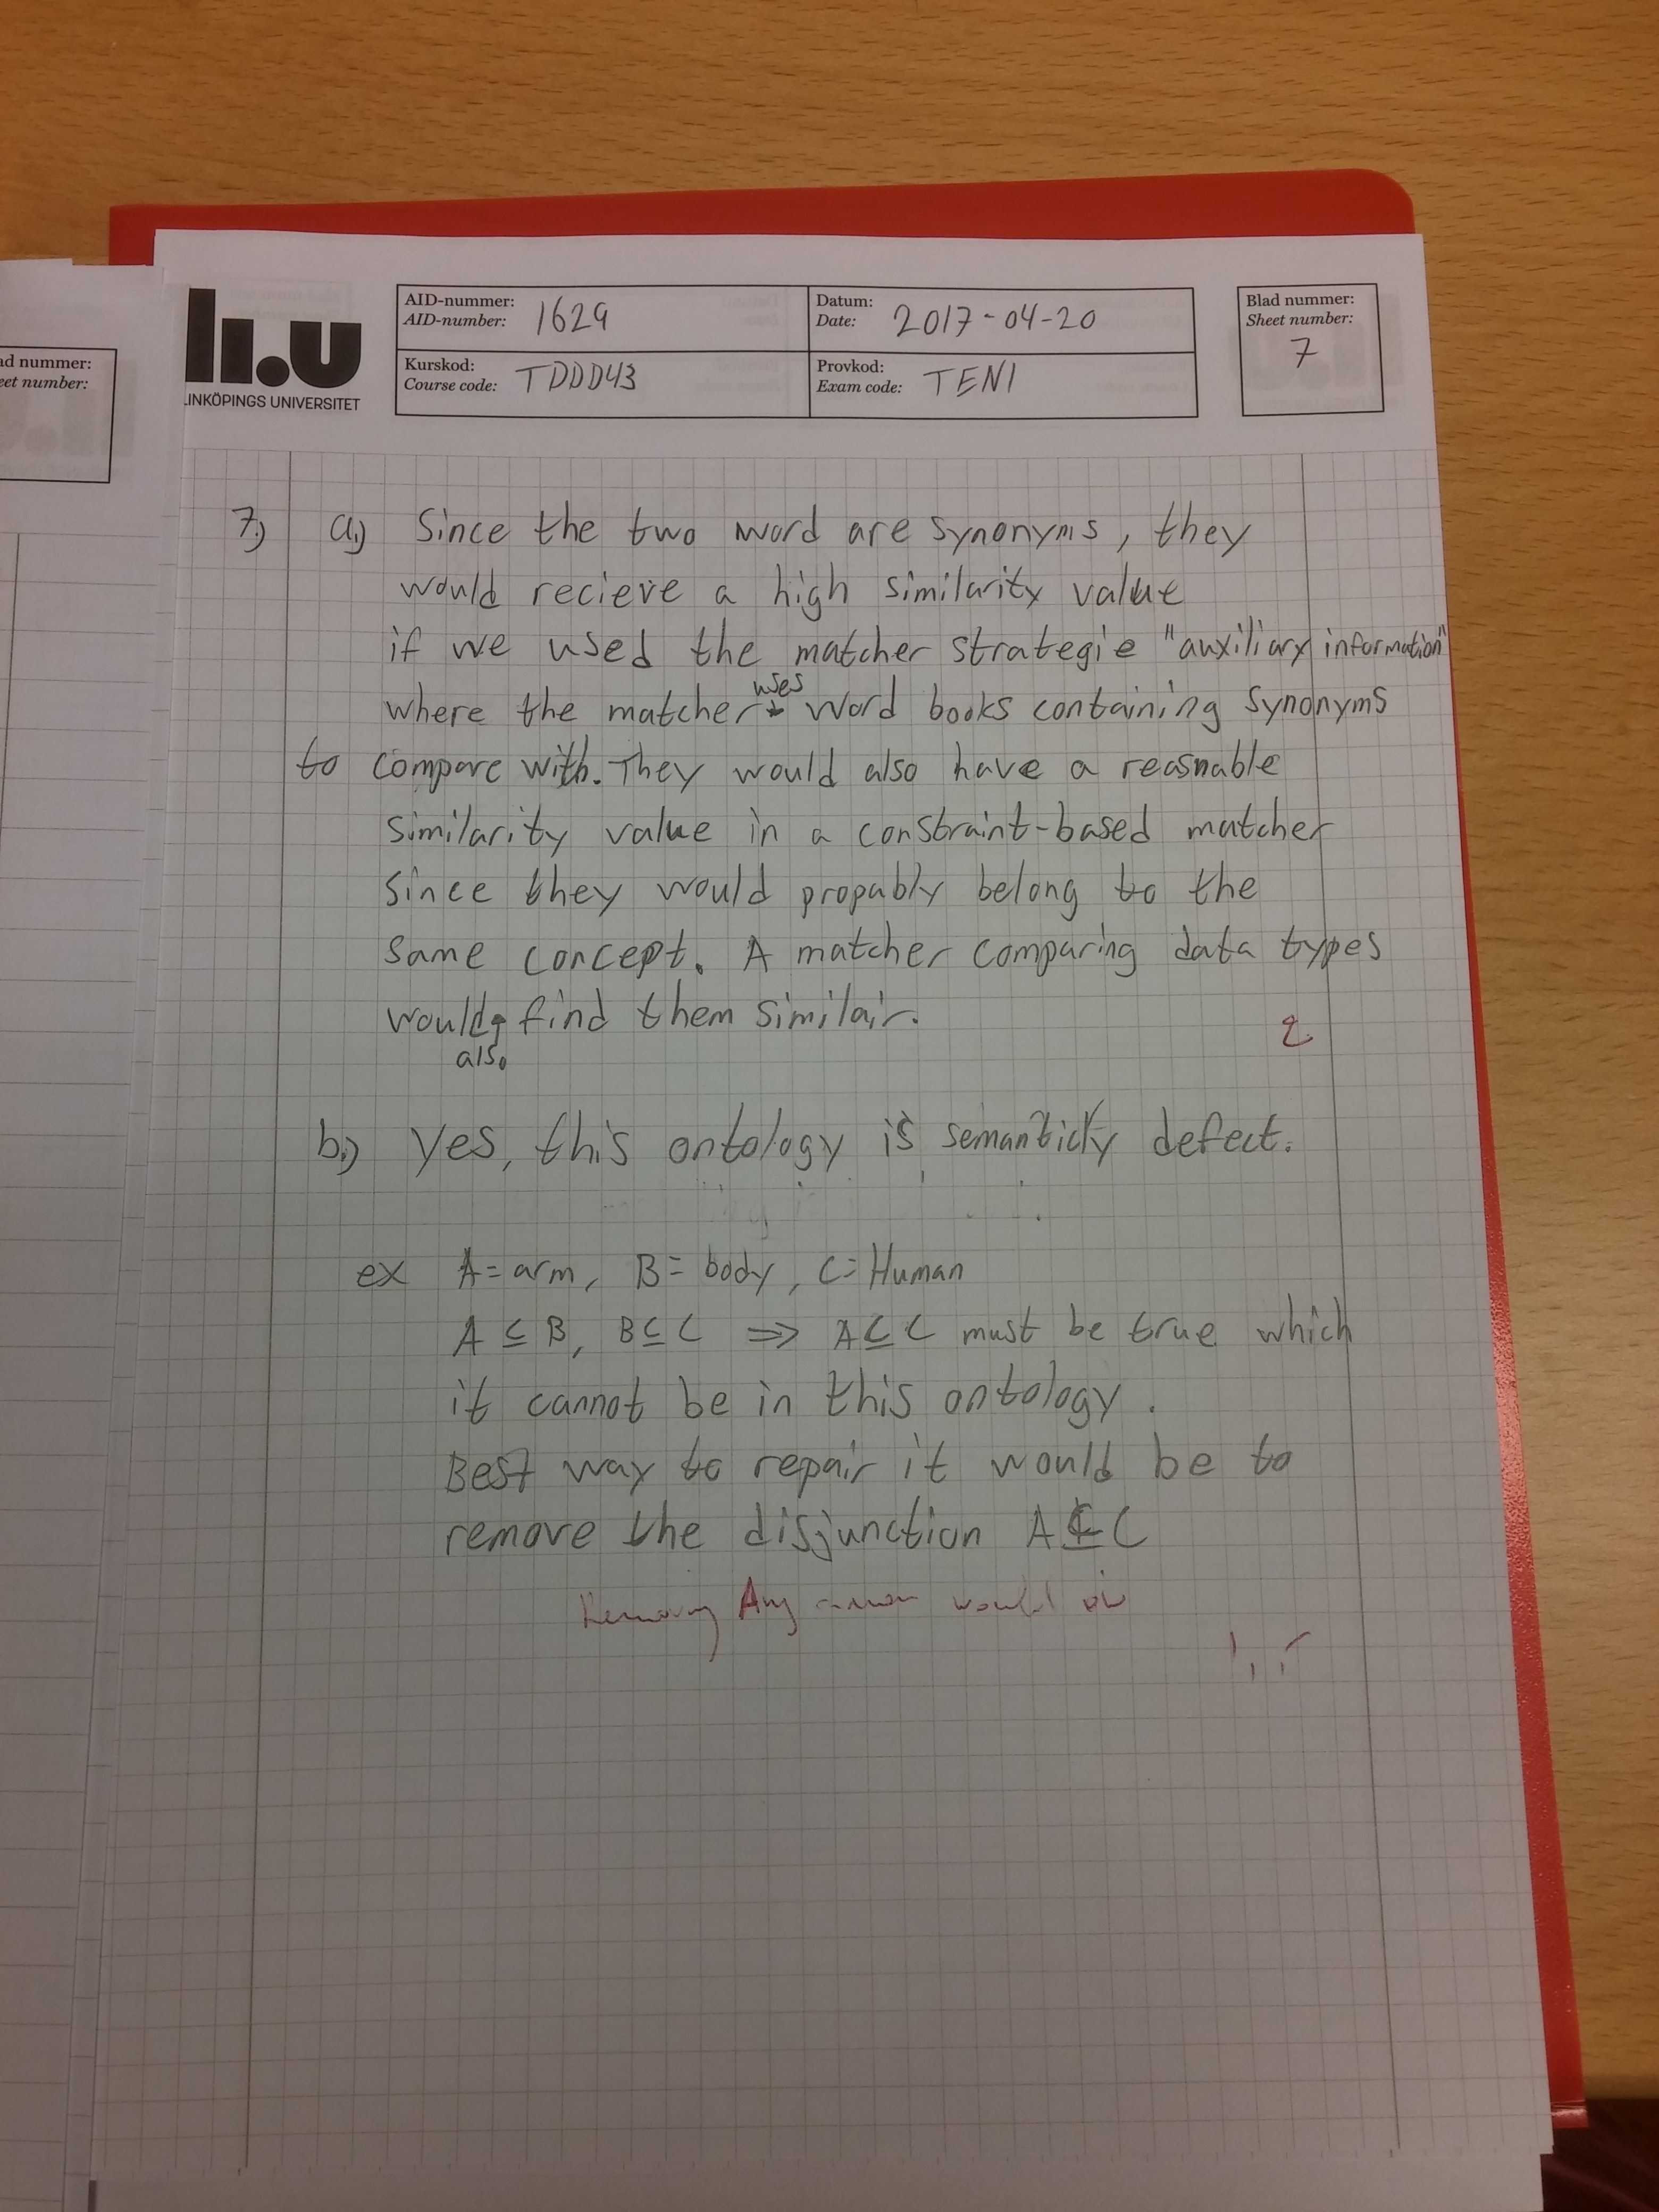 ad nummer:
eet number:
LINKÖPINGS UNIVERSITET
AID-nummer:
AID-number: 1629
Datum:
Date: 2017-04-20
Kurskod:
Course code: TDDD43
Provkod:
Exam code: TEN1
Blad nummer:
Sheet number:
7
7) a) Since the two word are synonyms, they
would recieve a high similarity value
if we used the matcher strategie "auxiliary information"
where the matcher uses word books containing synonyms
to compare with. They would also have a reasnable
similarity value in a constraint-based matcher
since they would propably belong to the
same concept. A matcher comparing data types
would also find them similair.
2
b) Yes, this ontology is semanticly defect.
ex A = arm, B = body, C = Human
A ⊆ B, B ⊆ C ⇒ A ⊆ C must be true which
it cannot be in this ontology.
Best way to repair it would be to
remove the disjunction A ⊈ C
Removing Any would
1,5